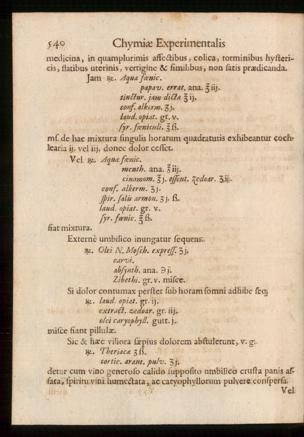 540 Chymiæ Experimentalis
medicina, in quamplurimis affectibus, colica, torminibus hysteri-
cis, flatibus uterinis, vertigine & similibus, non satis prædicanda.
Jam ℞. Aquæ fœnic.
papav. errat. ana. ℥iij.
tinctur. jam dicta ℥ij.
conf. alkerm. ʒj.
laud. opiat. gr. v.
syr. fœniculi. ℥ß.
mſ. de hac mixtura singulis horarum quadrantis exhibeantur coch-
learia ij. vel iij, donec dolor cesset.
Vel ℞. Aquæ fœnic.
menth. ana. ℥iij.
cinamom. ℥j. essent. zedoar. ʒij.
conf. alkerm. ʒj.
spir. salis armon. ʒj. ß.
laud. opiat. gr. v.
syr. fœnic. ℥ß.
fiat mixtura.
Externè umbilico inungatur sequens.
℞. Olei N. Mosch. express. ʒj.
carvi.
absynth. ana. ℈j.
Zibethi. gr. v. misce.
Si dolor contumax perstet sub horam somni adhibe seq;
℞. laud. opiat. gr. ij.
extract. zedoar. gr. iij.
olei caryophyll. gutt. j.
misce fiant pillulæ.
Sic & hæc viliora sæpius dolorem abstulerunt, v. g.
℞. Theriacæ ʒß.
cortic. arant. pulv. ʒj.
detur cum vino generoso calido supposito umbilico crusta panis as-
sata, spiritu vini humectata, ac caryophyllorum pulvere conspersa.
Vel